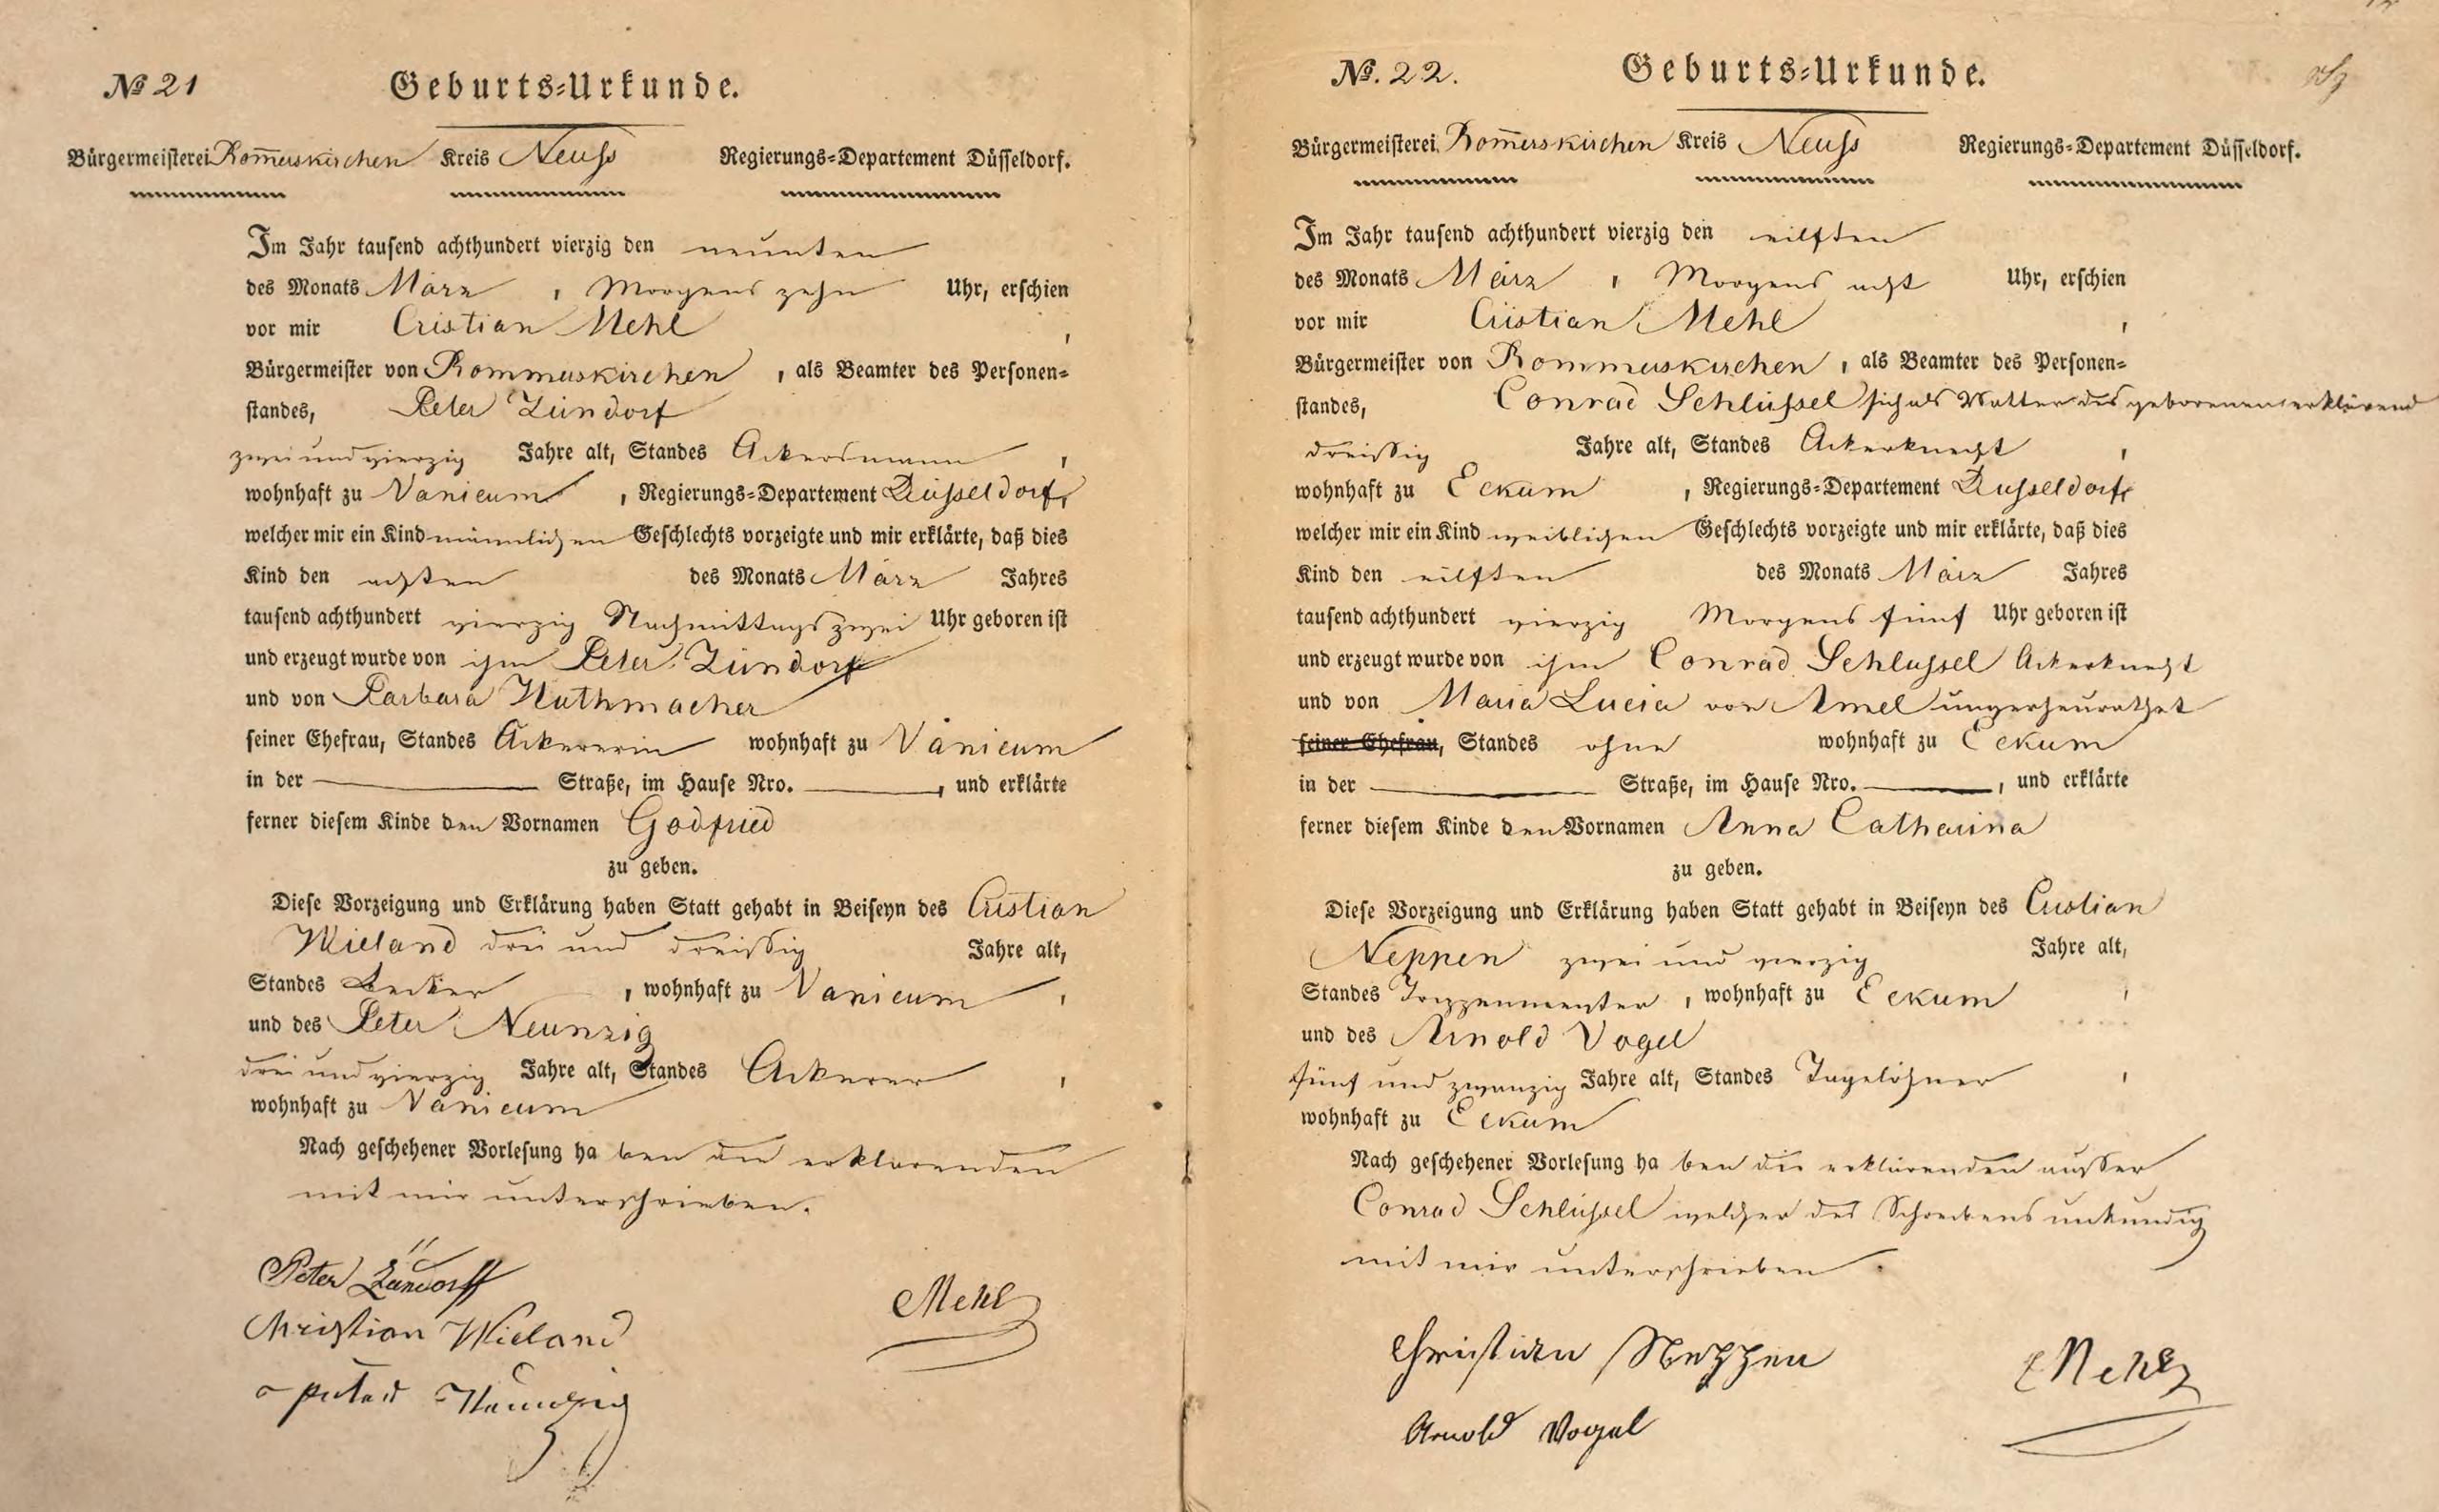 № 21
Geburts-Urkunde.
Bürgermeisterei Rom̄erskirchen Kreis Neuss Regierungs-Departement Düsseldorf.
Im Jahr tausend achthundert vierzig den neunten
des Monats März, Morgens zehn Uhr, erschien
vor mir Cristian Mehl,
Bürgermeister von Rommerskirchen, als Beamter des Personen-
standes, Peter Zündorf
zwei und vierzig Jahre alt, Standes Ackersmann,
wohnhaft zu Vanicum, Regierungs-Departement Düsseldorf,
welcher mir ein Kind männlichen Geschlechts vorzeigte und mir erklärte, daß dies
Kind den achten des Monats März Jahres
tausend achthundert vierzig Nachmittags zwei Uhr geboren ist
und erzeugt wurde von ihm Peter Zündorf
und von Barbara Huthmacher
seiner Ehefrau, Standes Ackererin wohnhaft zu Vanicum
in der Straße, im Hause Nro. , und erklärte
ferner diesem Kinde den Vornamen Godfried
zu geben.
Diese Vorzeigung und Erklärung haben Statt gehabt in Beiseyn des Cristian
Wieland drei und dreissig Jahre alt,
Standes Becker, wohnhaft zu Vanicum,
und des Peter Neunzig
drei und vierzig Jahre alt, Standes Ackerer,
wohnhaft zu Vanicum
Nach geschehener Vorlesung haben die erklärenden
mit mir unterschrieben.
Peter Zündorff
Mehl
Christian Wieland
peter Neunzig
№. 22.
Geburts-Urkunde.
Bürgermeisterei Rom̄erskirchen Kreis Neuss Regierungs-Departement Düsseldorf.
Im Jahr tausend achthundert vierzig den eilften
des Monats März, Morgens acht Uhr, erschien
vor mir Cristian Mehl,
Bürgermeister von Rommerskirchen, als Beamter des Personen-
standes, Conrad Schlüssel sich als Vatter des geborenen erklärend
dreissig Jahre alt, Standes Ackerknecht,
wohnhaft zu Eckum, Regierungs-Departement Düsseldorf,
welcher mir ein Kind weiblichen Geschlechts vorzeigte und mir erklärte, daß dies
Kind den eilften des Monats März Jahres
tausend achthundert vierzig Morgens fünf Uhr geboren ist
und erzeugt wurde von ihm Conrad Schlussel Ackerknecht
und von Maria Lucia von Amel ungerheurathet
seiner Ehefrau, Standes ohne wohnhaft zu Eckum
in der Straße, im Hause Nro. , und erklärte
ferner diesem Kinde den Vornamen Anna Catharina
zu geben.
Diese Vorzeigung und Erklärung haben Statt gehabt in Beiseyn des Cristian
Neppen zwei und vierzig Jahre alt,
Standes wohnhaft zu Eckum,
und des Arnold Vogel
fünf und zwanzig Jahre alt, Standes Tagelöhner,
wohnhaft zu Eckum
Nach geschehener Vorlesung haben die erklärenden ausser
Conrad Schlüssel welcher des Schreibens unkundig
mit mir unterschrieben.
Christian Neppen
Mehl
Arnold Vogel